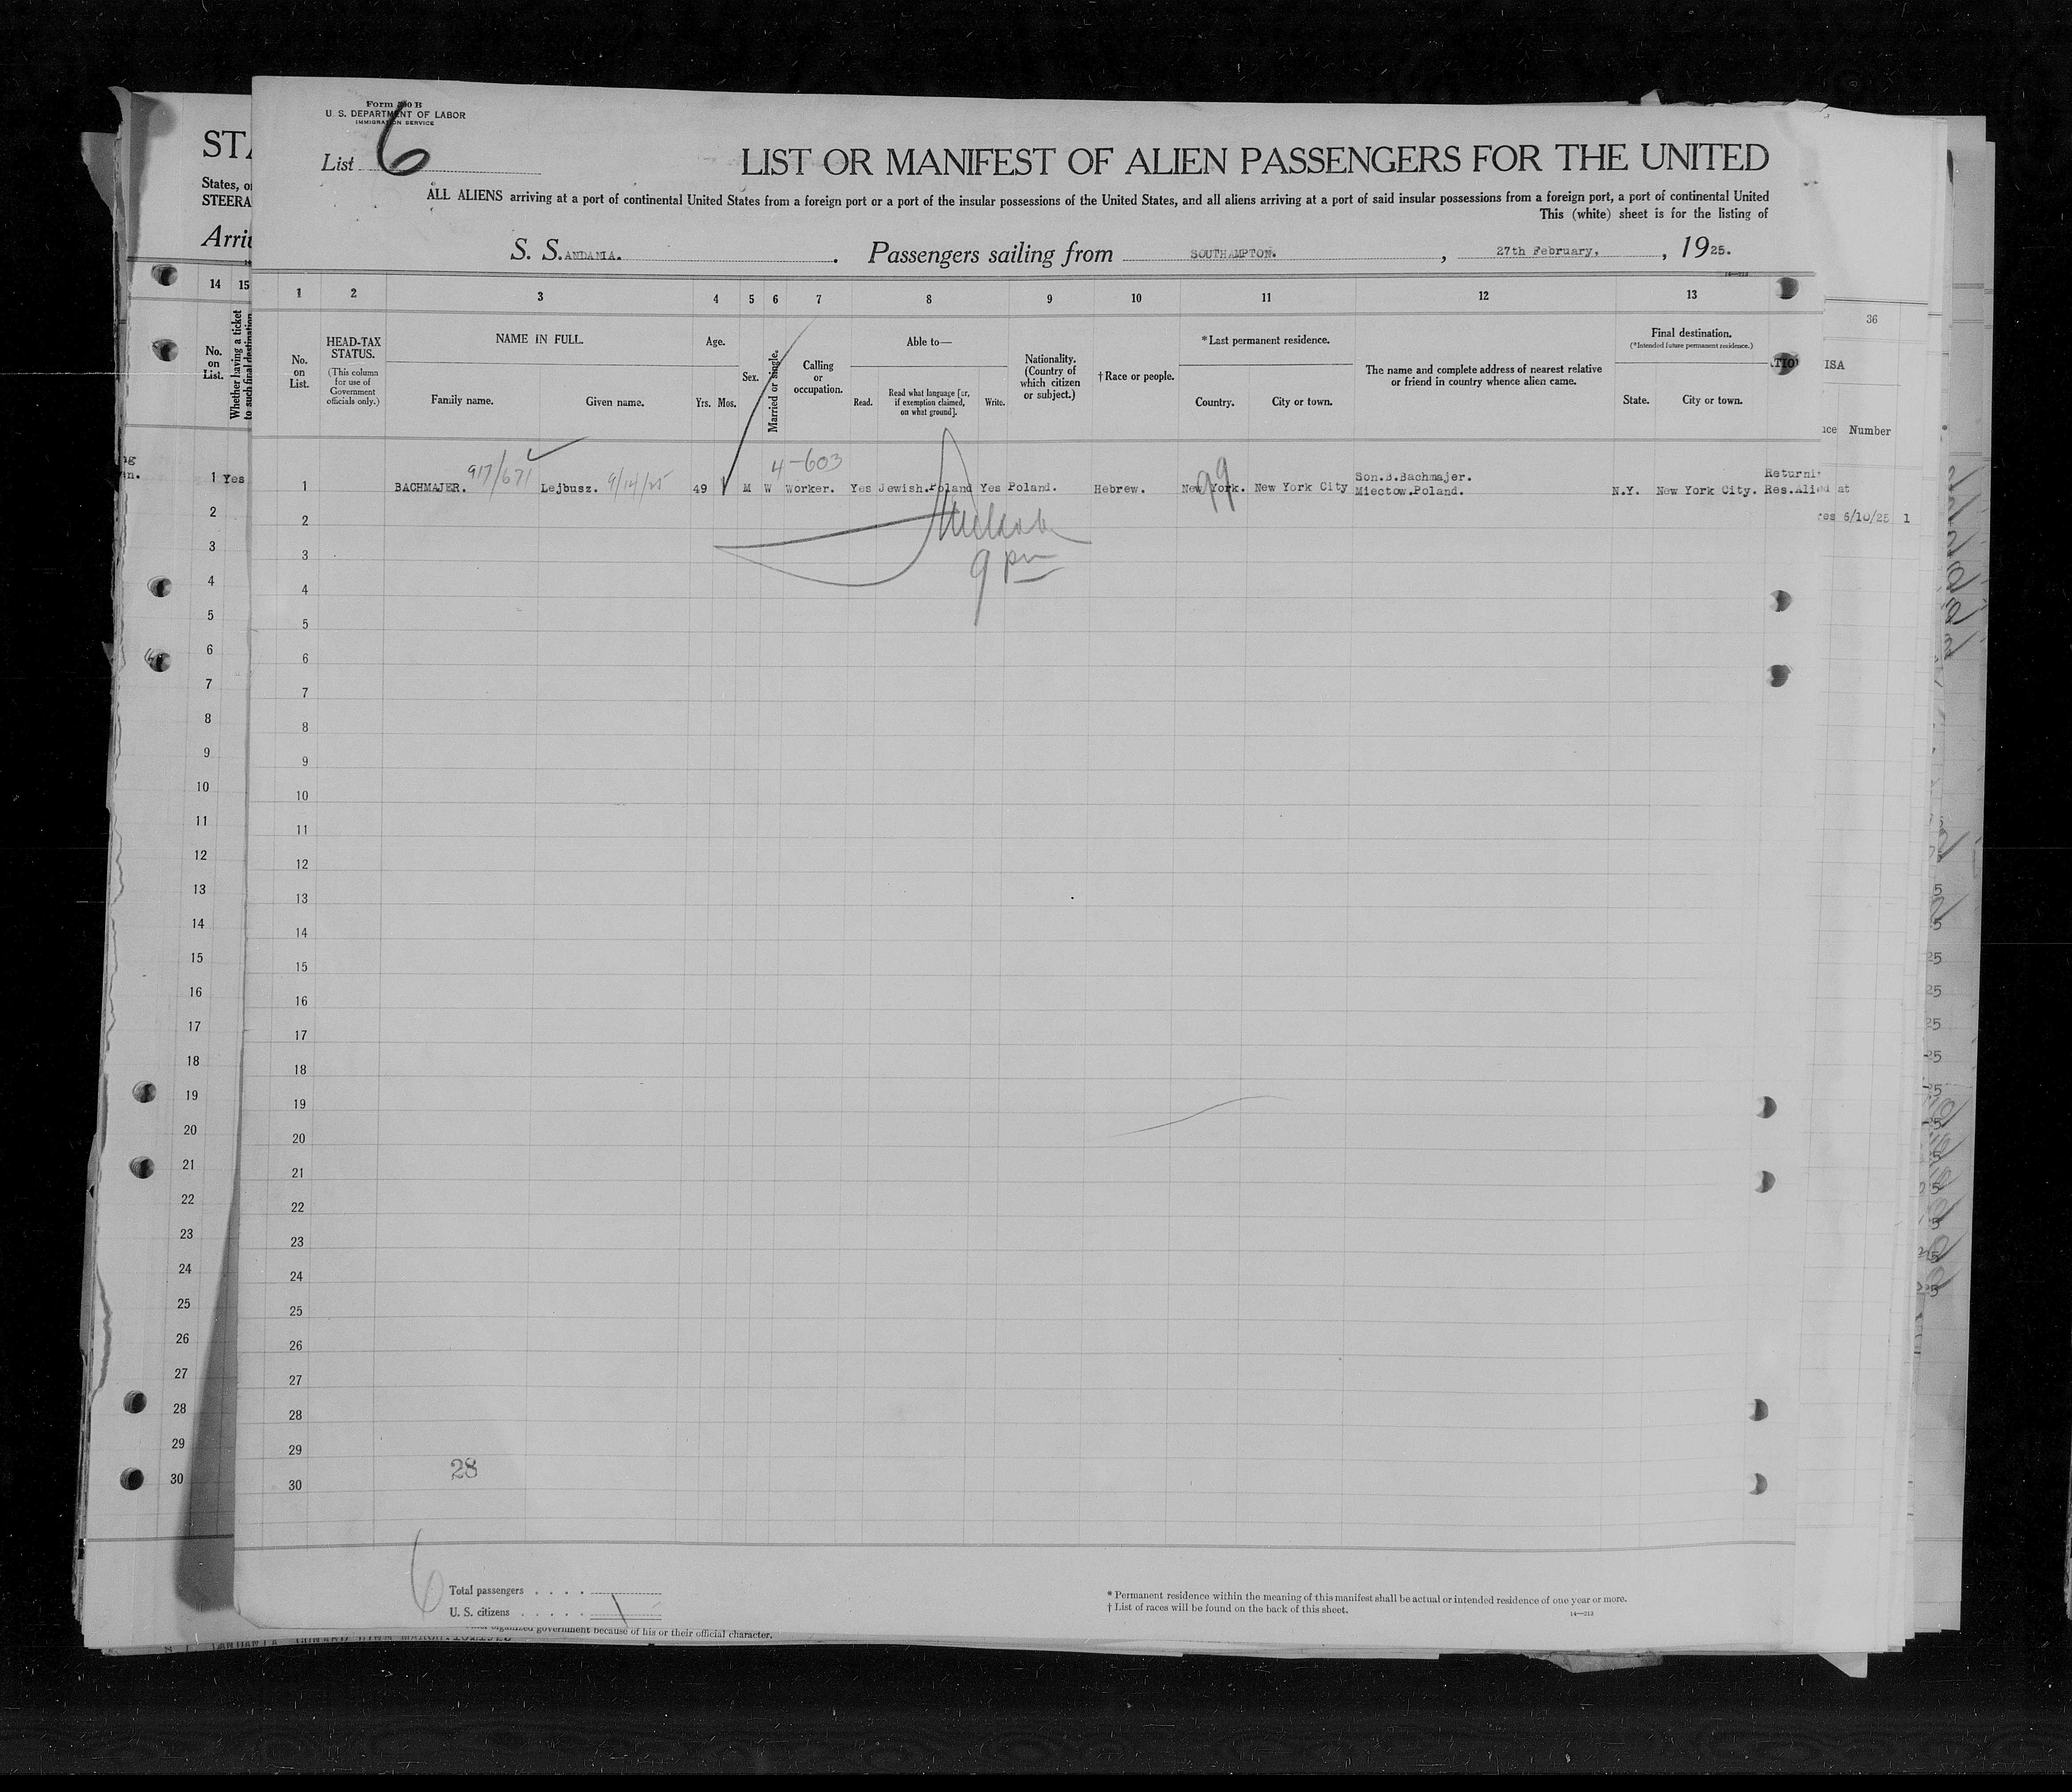 Form 500 B
U. S. DEPARTMENT OF LABOR
IMMIGRATION SERVICE
List 6
LIST OR MANIFEST OF ALIEN PASSENGERS FOR THE UNITED
ALL ALIENS arriving at a port of continental United States from a foreign port or a port of the insular possessions of the United States, and all aliens arriving at a port of said insular possessions from a foreign port, a port of continental United
This (white) sheet is for the listing of
S. S. ANDANIA. Passengers sailing from SOUTHAMPTON. , 27th February, , 1925.
1 2 3 4 5 6 7 8 9 10 11 12 13
No. on List.
HEAD-TAX STATUS.
(This column for use of Government officials only.)
NAME IN FULL.
Family name.
Given name.
Age.
Yrs. Mos.
Sex.
Married or single.
Calling or occupation.
Able to—
Read.
Read what language [or, if exemption claimed, on what ground].
Write.
Nationality. (Country of which citizen or subject.)
† Race or people.
* Last permanent residence.
Country.
City or town.
The name and complete address of nearest relative or friend in country whence alien came.
Final destination.
(*Intended future permanent residence.)
State.
City or town.
917/671 9/14/25 4-603 99
1 BACHMAJER. Lejbusz. 49 M W Worker. Yes Jewish.Poland Yes Poland. Hebrew. New York. New York City Son.B.Bachmajer. Miectow.Poland. N.Y. New York City. Returni Res.Alie
9 pm
2
3
4
5
6
7
8
9
10
11
12
13
14
15
16
17
18
19
20
21
22
23
24
25
26
27
28
29
30
28
6
Total passengers . . . .
U. S. citizens . . . . .
* Permanent residence within the meaning of this manifest shall be actual or intended residence of one year or more.
† List of races will be found on the back of this sheet.
14—213
organized government because of his or their official character.
STA
States, o
STEERA
Arri
14 15
No. on List.
Whether having a ticket to such final destination
1 Yes
2
3
4
5
6
7
8
9
10
11
12
13
14
15
16
17
18
19
20
21
22
23
24
25
26
27
28
29
30
36
ISA
Number
at
6/10/25 1